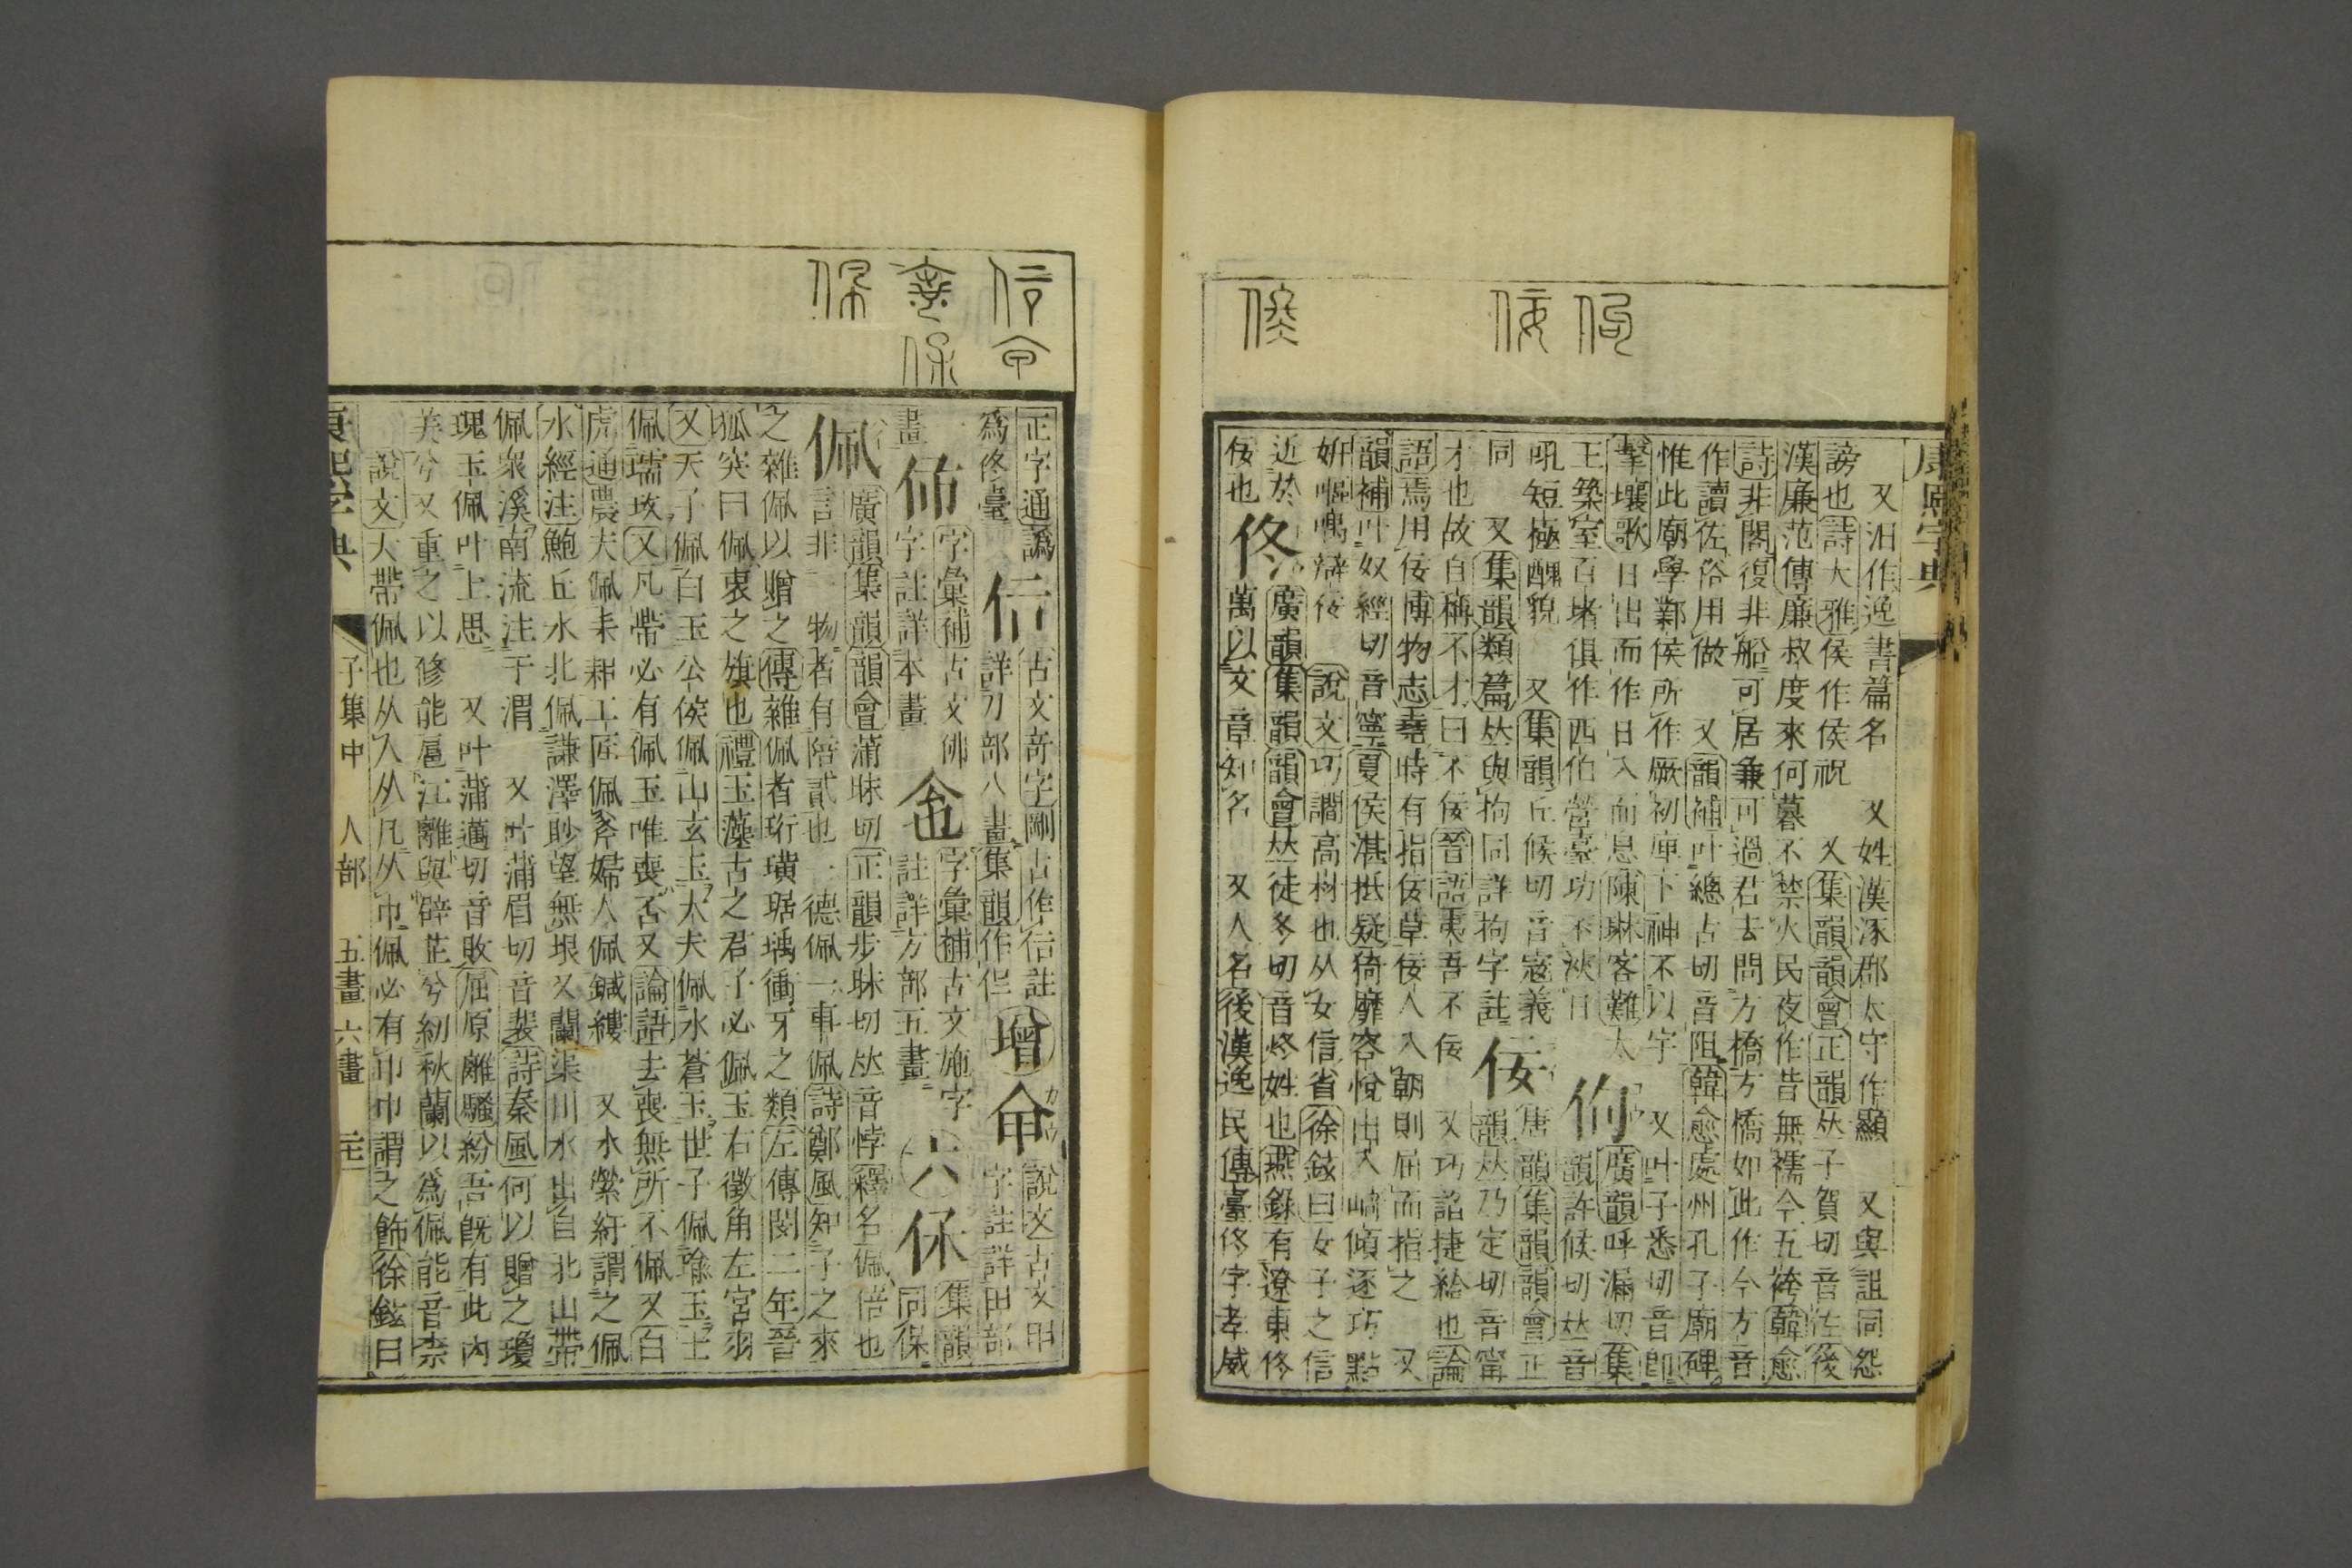 康熙字典
又沮作逸書篇名 又姓漢涿郡太守作顯 又與詛同怨
謗也詩大雅侯作侯祝 又集韻韻會正韻𠀤子賀切音佐後
漢廉范傳廉叔度來何暮不禁火民夜作昔無襦今五袴韓愈
詩非閣復非船可居兼可過君去問方橋方橋如此作今方音
作讀佐俗用做 又韻補叶總古切音阻韓愈處州孔子廟碑
惟此廟學鄴侯所作厥初庳下神不以宇 又叶子悉切音卽
擊壤歌日出而作日入而息陳琳客難太
王築室百堵俱作西伯營臺功不浹日
佝
廣韻呼漏切集
韻許候切𠀤音
吼短極醜貌 又集韻丘候切音宼義
同 又集韻類篇𠀤與拘同詳拘字註
佞
唐韻集韻韻會正
韻𠀤乃定切音甯
才也故自稱不才曰不佞晉語夷吾不佞 又巧諂捷給也論
語焉用佞博物志堯時有指佞草佞人入朝則屈而指之 又
韻補叶奴經切音寧夏侯湛抵疑猗靡容悅出入崎傾逐巧點
姸嘔喁辯佞 說文巧讇高材也从女信省徐鉉曰女子之信
近於
佞也
佟
廣韻集韻韻會𠀤徒冬切音彤姓也燕錄有遼東佟
萬以文章知名 又人名後漢逸民傳臺佟字孝威
正字通譌
爲佟臺
㐰
古文奇字剛古作㐰註
詳刀部八畫集韻作但
增
㑗
說文古文甲
字註詳田部
畫
㑂
字彙補古文佛
字註詳本畫
㐌
字彙補古文施字
註詳方部五畫
六
保
集韻
同保
佩
廣韻集韻韻會蒲昧切正韻步昧切𠀤音悖釋名佩倍也
言非一物有倍貳也 德佩 事佩詩鄭風知子之來
之雜佩以贈之傳雜佩者珩璜琚瑀衝牙之類左傳閔二年晉
狐突曰佩衷之旗也禮玉藻古之君子必佩玉右徵角左宮羽
又天子佩白玉公侯佩山玄玉大夫佩水蒼玉世子佩瑜玉士
佩瓀玟又凡帶必有佩玉唯喪否又論語去喪無所不佩又白
虎通農夫佩耒耜工匠佩斧婦人佩鍼縷 又水縈紆謂之佩
水經注鮑丘水北佩謙澤眇望無垠又蘭渠川水出自北山帶
佩衆溪南流注于渭 又叶蒲眉切音裴詩秦風何以贈之瓊
瑰玉佩叶上思 又叶蒲邁切音敗屈原離騷紛吾旣有此內
美兮又重之以修能扈江離與辟芷兮紉秋蘭以爲佩能音柰
說文大帶佩也从人从凡从巾佩必有巾巾謂之飾徐鉉曰
康熙字典 子集中 人部 五畫 六畫